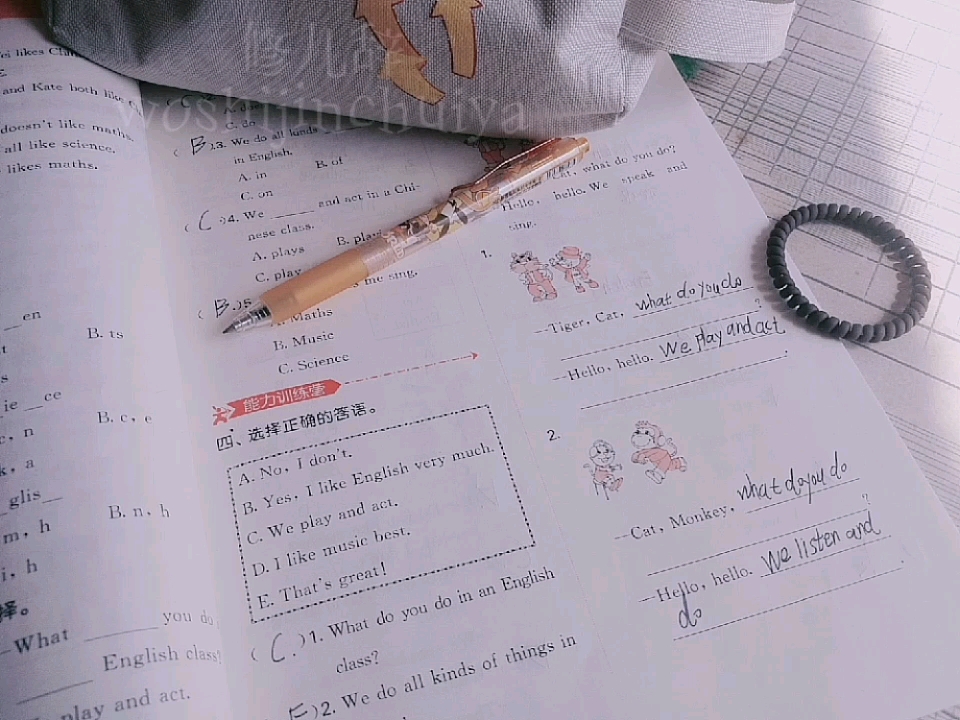 修九梓
woshijinchuiya
and Kate both like
doesn't like maths.
all like science.
likes maths.
en
B. ts
ie __ ce
B. c, e
c, n
k, a
glis__
B. n, h
m, h
i, h
择。
—What ______ you do
______ English class?
play and act.
C. do
( B )3. We do all kinds
in English.
A. in
B. of
C. on
( C )4. We ____ and act in a Chi-
nese class.
A. plays
B. play
C. play
( B. )5.
me sing.
Maths
B. Music
C. Science
能力训练营
四、选择正确的答语。
A. No, I don't.
B. Yes, I like English very much.
C. We play and act.
D. I like music best.
E. That's great!
( C. )1. What do you do in an English
class?
E )2. We do all kinds of things in
Cat, what do you do?
Hello, hello. We speak and
sing.
1.
—Tiger, Cat, what do you do
?
—Hello, hello. We play and act
.
2.
—Cat, Monkey, what do you do
?
—Hello, hello. We listen and
do .